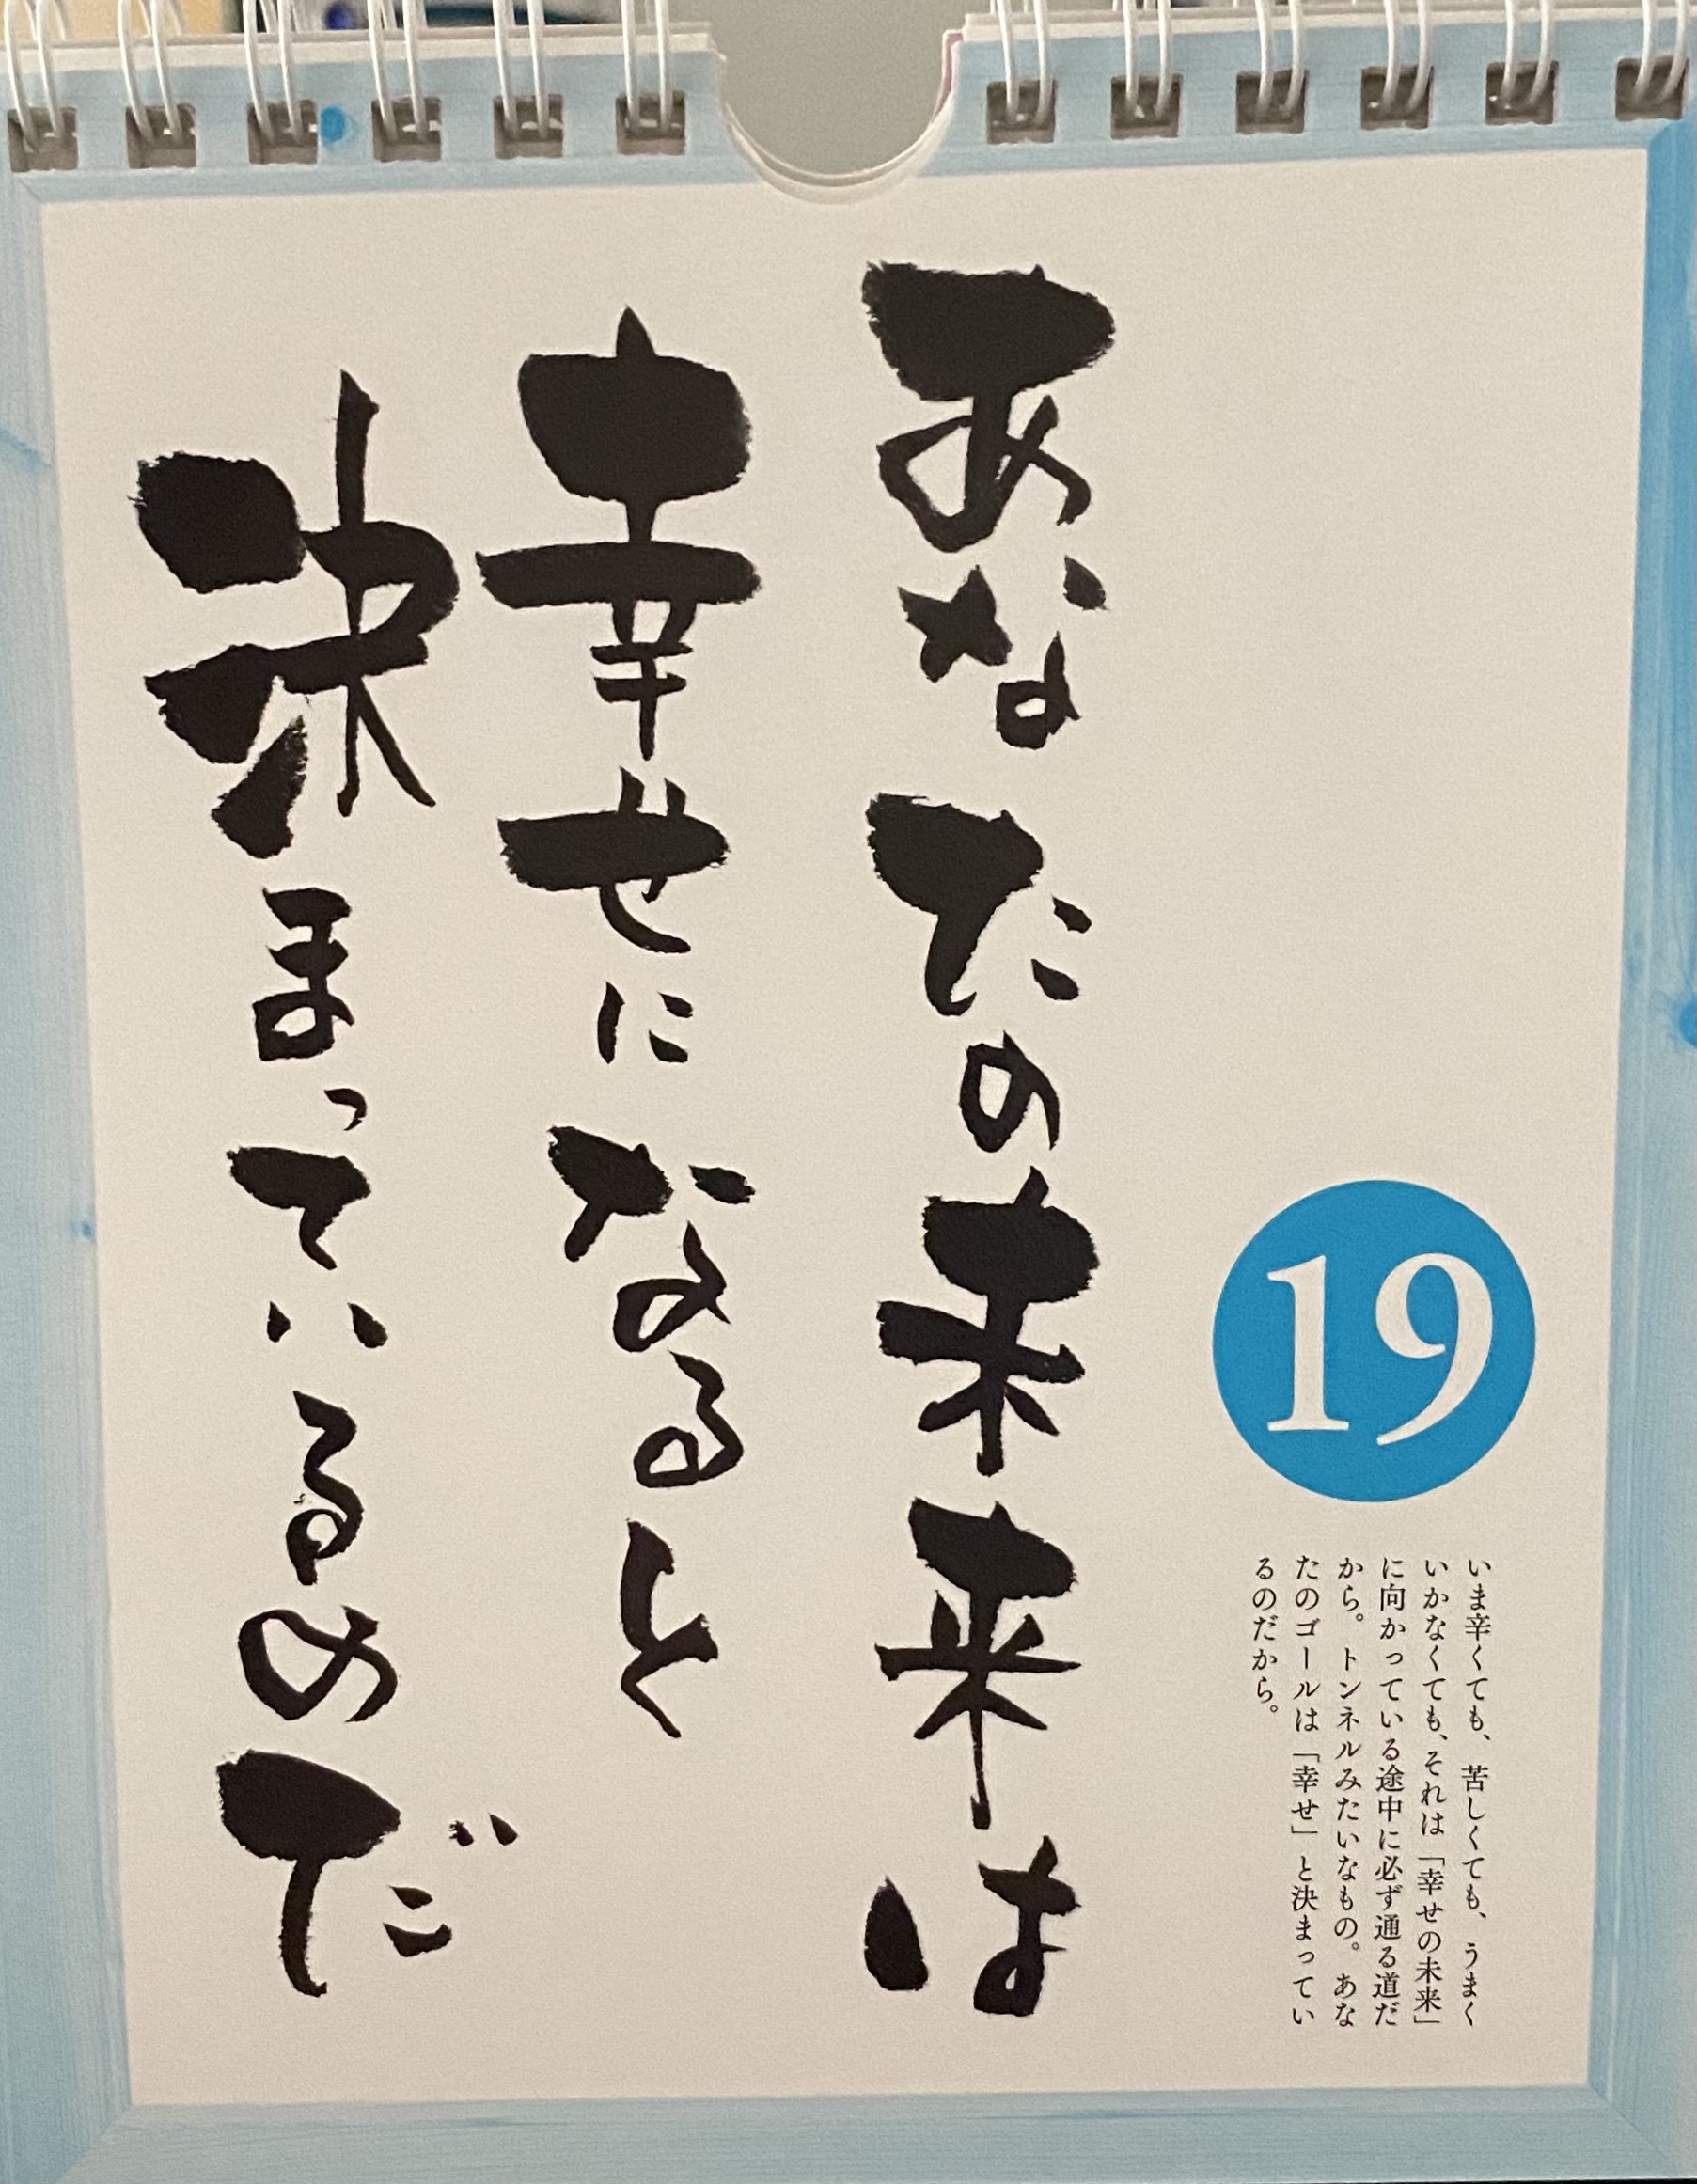 あなたの未来は
幸せになると
決まっているのだ
19
いま辛くても、苦しくても、うまく
いかなくても、それは「幸せの未来」
に向かっている途中に必ず通る道だ
から。トンネルみたいなもの。あな
たのゴールは「幸せ」と決まってい
るのだから。